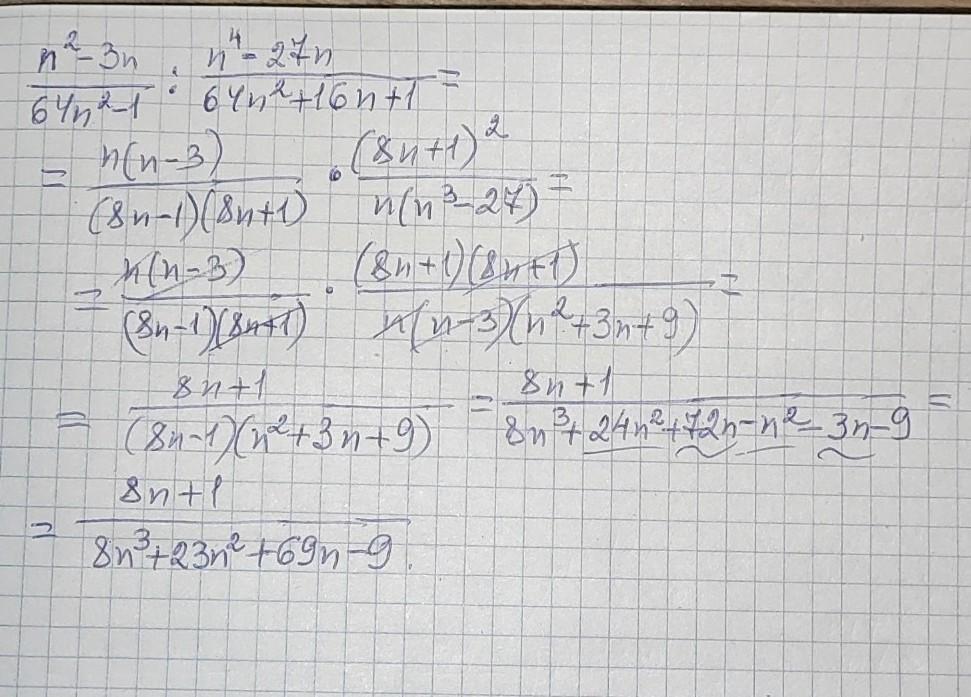 (n² - 3n)/(64n² - 1) : (n⁴ - 27n)/(64n² + 16n + 1) =
= n(n-3)/((8n-1)(8n+1)) · (8n+1)²/(n(n³-27)) =
= n(n-3)/((8n-1)(8n+1)) · (8n+1)(8n+1)/(n(n-3)(n²+3n+9)) =
= (8n+1)/((8n-1)(n²+3n+9)) = (8n+1)/(8n³+24n²+72n-n²-3n-9) =
= (8n+1)/(8n³+23n²+69n-9).